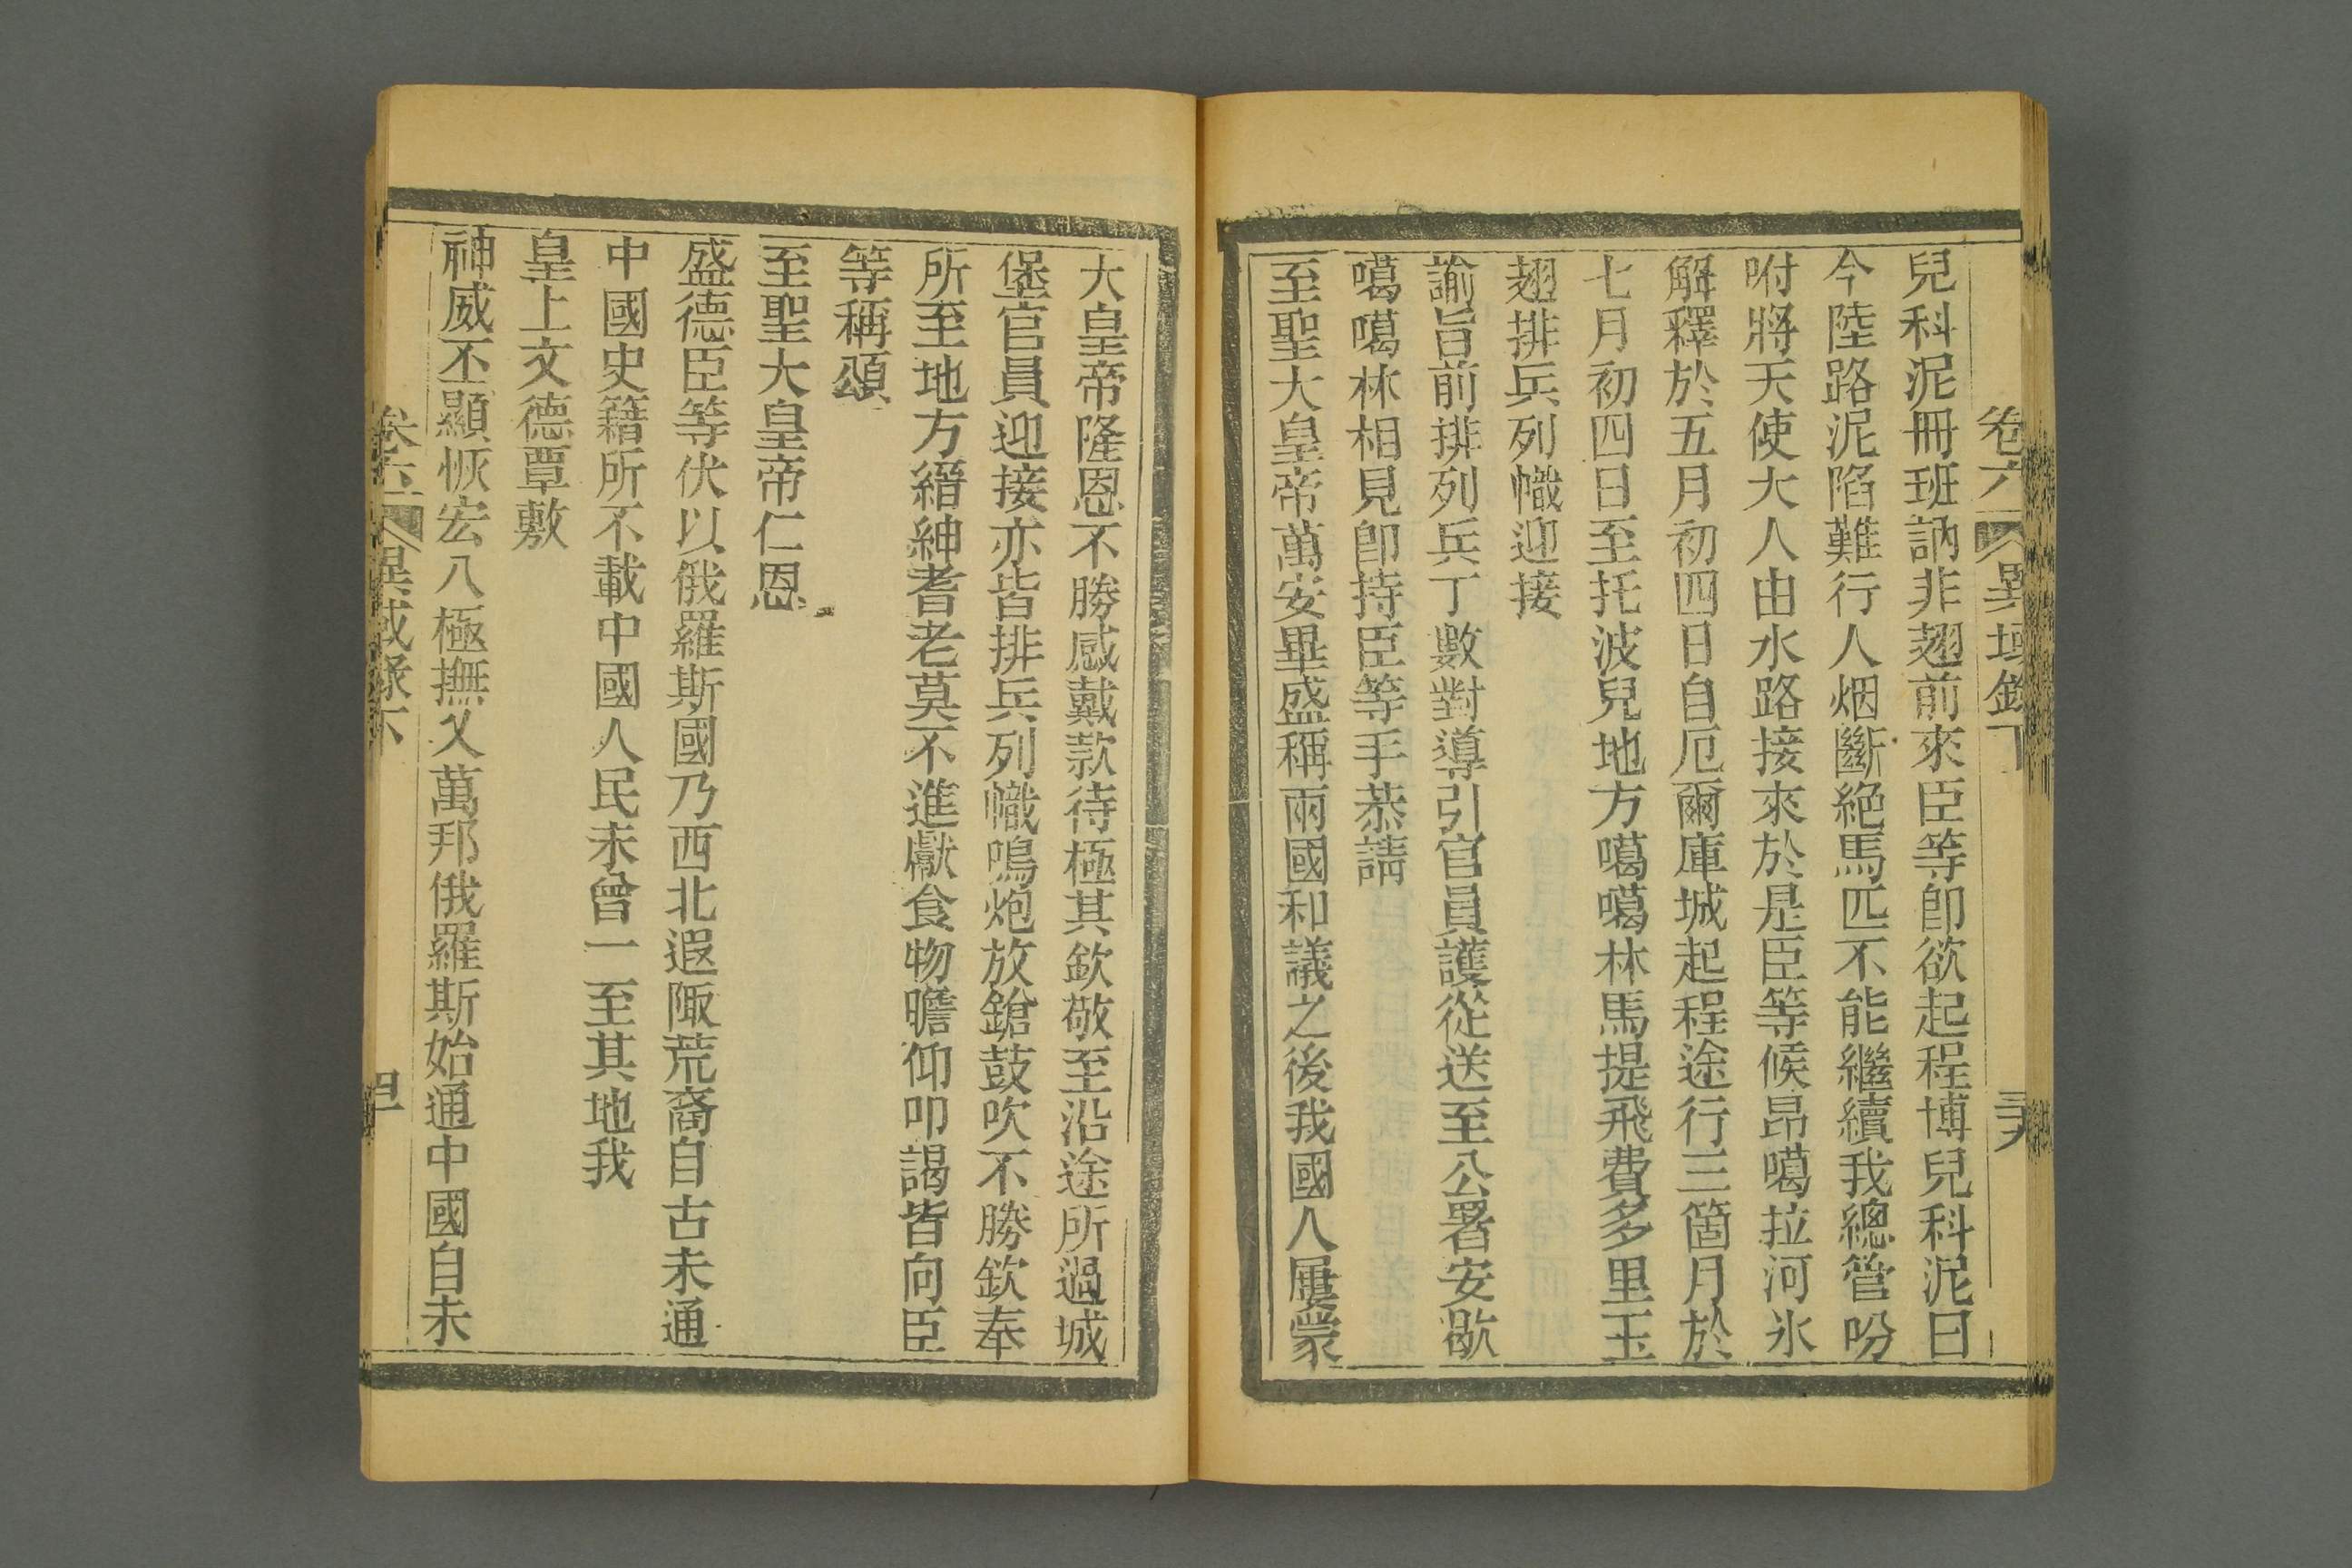 卷六 異域錄下 三九
兒科泥冊班訥非翅前來臣等卽欲起程博兒科泥曰
今陸路泥陷難行人烟斷絕馬匹不能繼續我總管吩
咐將天使大人由水路接來於是臣等候昂噶拉河氷
解釋於五月初四日自厄爾庫城起程途行三箇月於
七月初四日至托波兒地方噶噶林馬提飛費多里玉
翅排兵列幟迎接
諭旨前排列兵丁數對導引官員護從送至公署安歇
噶噶林相見卽持臣等手恭請
至聖大皇帝萬安畢盛稱兩國和議之後我國人屢蒙
大皇帝隆恩不勝感戴款待極其欽敬至沿途所過城
堡官員迎接亦皆排兵列幟鳴炮放鎗鼓吹不勝欽奉
所至地方縉紳耆老莫不進獻食物瞻仰叩謁皆向臣
等稱頌
至聖大皇帝仁恩
盛德臣等伏以俄羅斯國乃西北遐陬荒裔自古未通
中國史籍所不載中國人民未曾一至其地我
皇上文德覃敷
神威丕顯恢宏八極撫乂萬邦俄羅斯始通中國自未
卷六 異域錄下